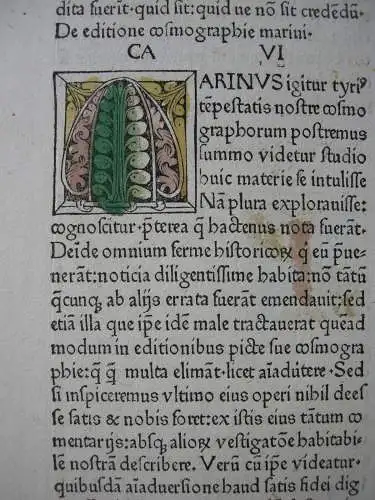 dita fuerāt·quid sit:quid ue nō sit crededū.
De editione cosmographie marini.
CA VI
MARINVS igitur tyriꝰ
tēpestatis nostre cosmo
graphorum postremus
summo videtur studio
huic materie se intulisse
Nā plura explorauisse:
cognoscitur·p̄terea q̄ hactenus nota fuerāt.
Deīde omnium ferme historicoꝝ q̄ eū p̄ue-
nerāt:noticia diligentissime habita:nō tātū
q̄cunqꝫ ab alijs errata fuerāt emendauit:sed
etiā illa que ip̄e idē male tractauerat quead
modum in editionibus picte sue cosmogra
phie:q̄ q̄ multa elimat·licet aīaduitere·Sed
si inspiceremus vltimo eius operi nihil dees
se satis & nobis foret:ex istis eius tātum co
mentarijs:absqꝫ alioꝝ vestigatōne habitabi-
lē nostrā describere. Verū cū ip̄e videatur·
quibusdā aīaduersione haud satis fidei dig